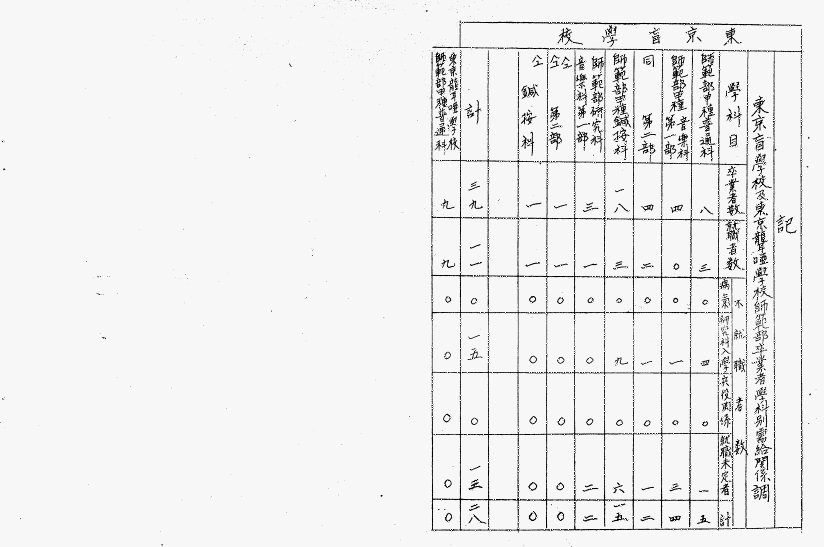 記
東京盲學校及東京聾唖學校師範部卒業者學科別需給關係調
東京盲學校
學科目 卒業者數 就職者數 不就職者數 病氣 研究科入學 兵役關係 就職未定者 計
師範部甲種普通科 八 三 〇 四 〇 一 五
師範部甲種音樂科第一部 四 〇 〇 一 〇 三 四
同 第二部 四 二 〇 一 〇 一 二
師範部甲種鍼按科 一八 三 〇 九 〇 六 一五
師範部研究科音樂科第一部 三 一 〇 〇 〇 二 二
仝仝 第二部 一 一 〇 〇 〇 〇 〇
仝 鍼按科 一 一 〇 〇 〇 〇 〇
計 三九 一一 〇 一五 〇 一三 二八
東京聾唖學校師範部甲種普通科 九 九 〇 〇 〇 〇 〇